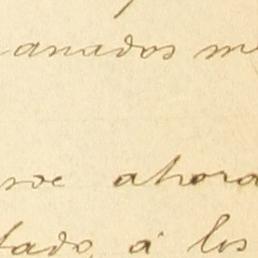 anados m
sde ahora
tado, á los